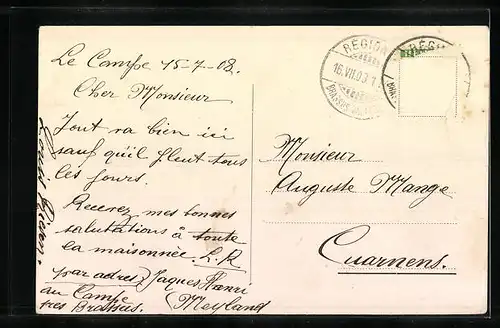 Le Campe 15-7-08.
Cher Monsieur
Tout va bien ici
sauf qu'il pleut tous
les jours.
Recevez mes bonnes
salutations à toute
la maisonnée L.R
par adres. Jaques Henri
au Campe Meylan
près Brassus.
Louis
REGION
16.VII.08
REGI
Monsieur
Auguste Mange
Cuarnens.